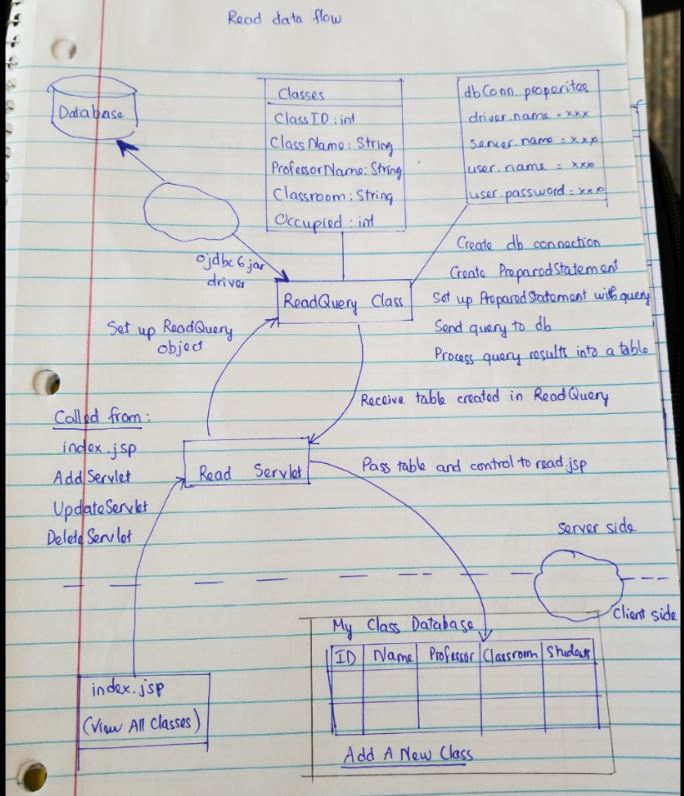 Read data flow
Database
Classes
ClassID : int
ClassName : String
ProfessorName : String
Classroom : String
Occupied : int
dbConn.properites
driver.name = xxx
server.name = xxx
user.name = xxx
user.password = xxx
ojdbc6.jar
driver
ReadQuery Class
Create db connection
Create PreparedStatement
Set up PreparedStatement with query
Send query to db
Process query results into a table
Set up ReadQuery
object
Receive table created in ReadQuery
Called from :
index.jsp
AddServlet
UpdateServlet
DeleteServlet
Read Servlet
Pass table and control to read.jsp
Server side
Client side
index.jsp
(View All Classes)
My Class Database
ID Name Professor Classroom Students
Add A New Class